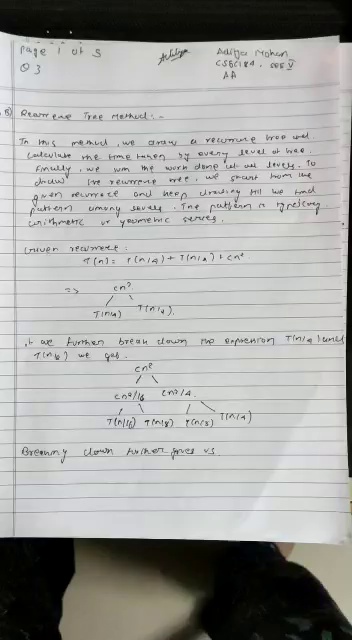 Page 1 of 5
Aditya Mohan
Q3
CSBC184. SEE V
AA
Recurrence Tree Method:-
In this method, we draw a recurrence tree and
calculate the time taken by every level of tree.
Finally, we sum the work done at all levels. To
draw the recurrence tree, we start from the
given recurrence and keep drawing till we find
pattern among levels. The pattern is typically
arithmetic or geometric series.
Given recurrence:
T(n) = T(n/4) + T(n/2) + cn²
=> cn²
T(n/4) T(n/2)
if we further break down the expression T(n/4) and
T(n/2) we get.
cn²
cn²/16 cn²/4
T(n/16) T(n/8) T(n/8) T(n/4)
Breaking down further gives us